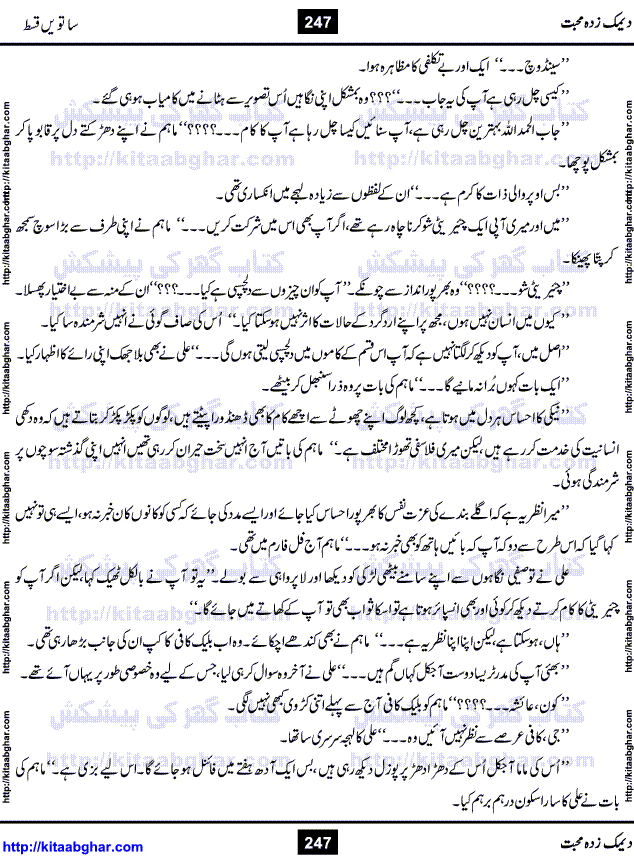 دیمک زدہ محبت 247 ساتویں قسط
’’سینڈوچ ۔۔۔‘‘ ایک اور بے تکلفی کا مظاہرہ ہوا۔
’’کیسی چل رہی ہے آپ کی یہ جاب ۔۔۔‘‘؟؟؟ وہ بمشکل اپنی نگاہیں اُس تصویر سے ہٹانے میں کامیاب ہو ہی گئے۔
’’جاب الحمد اللہ بہترین چل رہی ہے، آپ سنائیں کیسا چل رہا ہے آپ کا کام ۔۔۔؟؟؟؟‘‘ ماہم نے اپنے دھڑکتے دل پر قابو پا کر
بمشکل پوچھا۔
’’بس اوپر والی ذات کا کرم ہے ۔۔۔‘‘ ان کے لفظوں سے زیادہ لہجے میں انکساری تھی۔
’’میں اور میری آپی ایک چئیریٹی شو کرنا چاہ رہے تھے، اگر آپ بھی اس میں شرکت کریں ۔۔۔‘‘ ماہم نے اپنی طرف سے بڑا سوچ سمجھ
کر پتّا پھینکا۔
’’چئیریٹی شو ۔۔۔؟؟؟؟‘‘ وہ بھرپور انداز سے چونکے۔ ’’آپ کو ان چیزوں سے دلچسپی ہے کیا ۔۔۔؟؟؟‘‘ ان کے منہ سے بے اختیار پھسلا۔
’’کیوں میں انسان نہیں ہوں، مجھ پر اپنے اردگرد کے حالات کا اثر نہیں ہو سکتا کیا۔‘‘ اُس کی صاف گوئی نے انہیں شرمندہ سا کیا۔
’’اصل میں، آپ کو دیکھ کر لگتا نہیں ہے کہ آپ اس قسم کے کاموں میں دلچسپی لیتی ہوں گی ۔۔۔‘‘ علی نے بھی بلا جھجک اپنی رائے کا اظہار کیا۔
’’ایک بات کہوں بُرا نہ مانیے گا ۔۔۔‘‘ ماہم کی بات پر وہ ذرا سنبھل کر بیٹھے۔
’’نیکی کا احساس ہر دل میں ہوتا ہے، کچھ لوگ اپنے چھوٹے سے اچھے کام کا بھی ڈھنڈورا پیٹتے ہیں، لوگوں کو پکڑ پکڑ کر بتاتے ہیں کہ وہ دکھی
انسانیت کی خدمت کر رہے ہیں، لیکن میری فلاسفی تھوڑا مختلف ہے۔‘‘ ماہم کی باتیں آج انہیں سخت حیران کر رہی تھیں انہیں اپنی گذشتہ سوچوں پر
شرمندگی ہوئی۔
’’میرا نظریہ ہے کہ اگلے بندے کی عزت نفس کا بھرپور احساس کیا جائے اور ایسے مدد کی جائے کہ کسی کو کانوں کان خبر نہ ہو، ایسے ہی تو نہیں
کہا گیا کہ اس طرح سے دو کہ آپ کے بائیں ہاتھ کو بھی خبر نہ ہو ۔۔۔‘‘ ماہم آج فل فارم میں تھی۔
علی نے توصیفی نگاہوں سے اپنے سامنے بیٹھی لڑکی کو دیکھا اور لاپرواہی سے بولے۔ ’’یہ تو آپ نے بالکل ٹھیک کہا، لیکن اگر آپ کو
چئیریٹی کا کام کرتے دیکھ کر کوئی اور بھی انسپائر ہوتا ہے تو اسکا ثواب بھی تو آپ کے کھاتے میں جائے گا۔‘‘
’’ہاں، ہو سکتا ہے، لیکن اپنا اپنا نظریہ ہے ۔۔۔‘‘ ماہم نے بھی کندھے اچکائے۔ وہ اب بلیک کافی کا کپ ان کی جانب بڑھا رہی تھی۔
’’بھئی آپ کی مدر ٹریسا دوست آجکل کہاں گم ہیں ۔۔۔‘‘ علی نے آخر وہ سوال کر ہی لیا، جس کے لیے وہ خصوصی طور پر یہاں آئے تھے۔
’’کون، عائشہ ۔۔۔؟؟؟؟‘‘ ماہم کو بلیک کافی آج سے پہلے اتنی کڑوی کبھی نہیں لگی۔
’’جی، کافی عرصے سے نظر نہیں آئیں وہ ۔۔۔‘‘ علی کا لہجہ سرسری سا تھا۔
’’اُس کی ماما آجکل اُس کے دھڑا دھڑ پرپوزل دیکھ رہی ہیں، بس ایک آدھ ہفتے میں فائنل ہو جائے گا۔ اس لیے بزی ہے۔‘‘ ماہم کی
بات نے علی کا سارا سکون درہم برہم کیا۔
دیمک زدہ محبت 247 http://kitaabghar.com
کتاب گھر کی پیشکش
http://kitaabghar.com